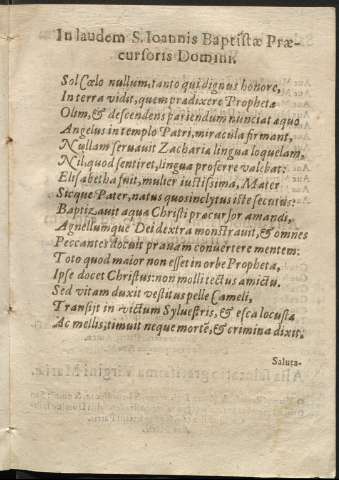 In laudem S. Ioannis Baptistæ Præ-
cursoris Domini.
Sol Cælo nullum, tanto qui dignus honore,
In terra vidit, quem prædixere Propheta
Olim, & descendens pariendum nunciat aquo
Angelus in templo Patri, miracula firmant,
Nullam seruauit Zacharia lingua loquelam,
Nil, quod sentiret, lingua proferre valebat:
Elisabetha fuit, mulier iustissima, Mater
Sicque Pater, natus quos inclytus iste secutus:
Baptizauit aqua Christi præcursor amandi,
Agnellumque Dei dextra monstrauit, & omnes
Peccantes docuit prauam conuertere mentem:
Toto quod maior non esset in orbe Propheta,
Ipse docet Christus: non molli tectus amictu.
Sed vitam duxit vestitus pelle Cameli,
Transijt in victum Syluestris, & esca locusta
Ac mellis; timuit neque morté, & crimina dixit.
Saluta-